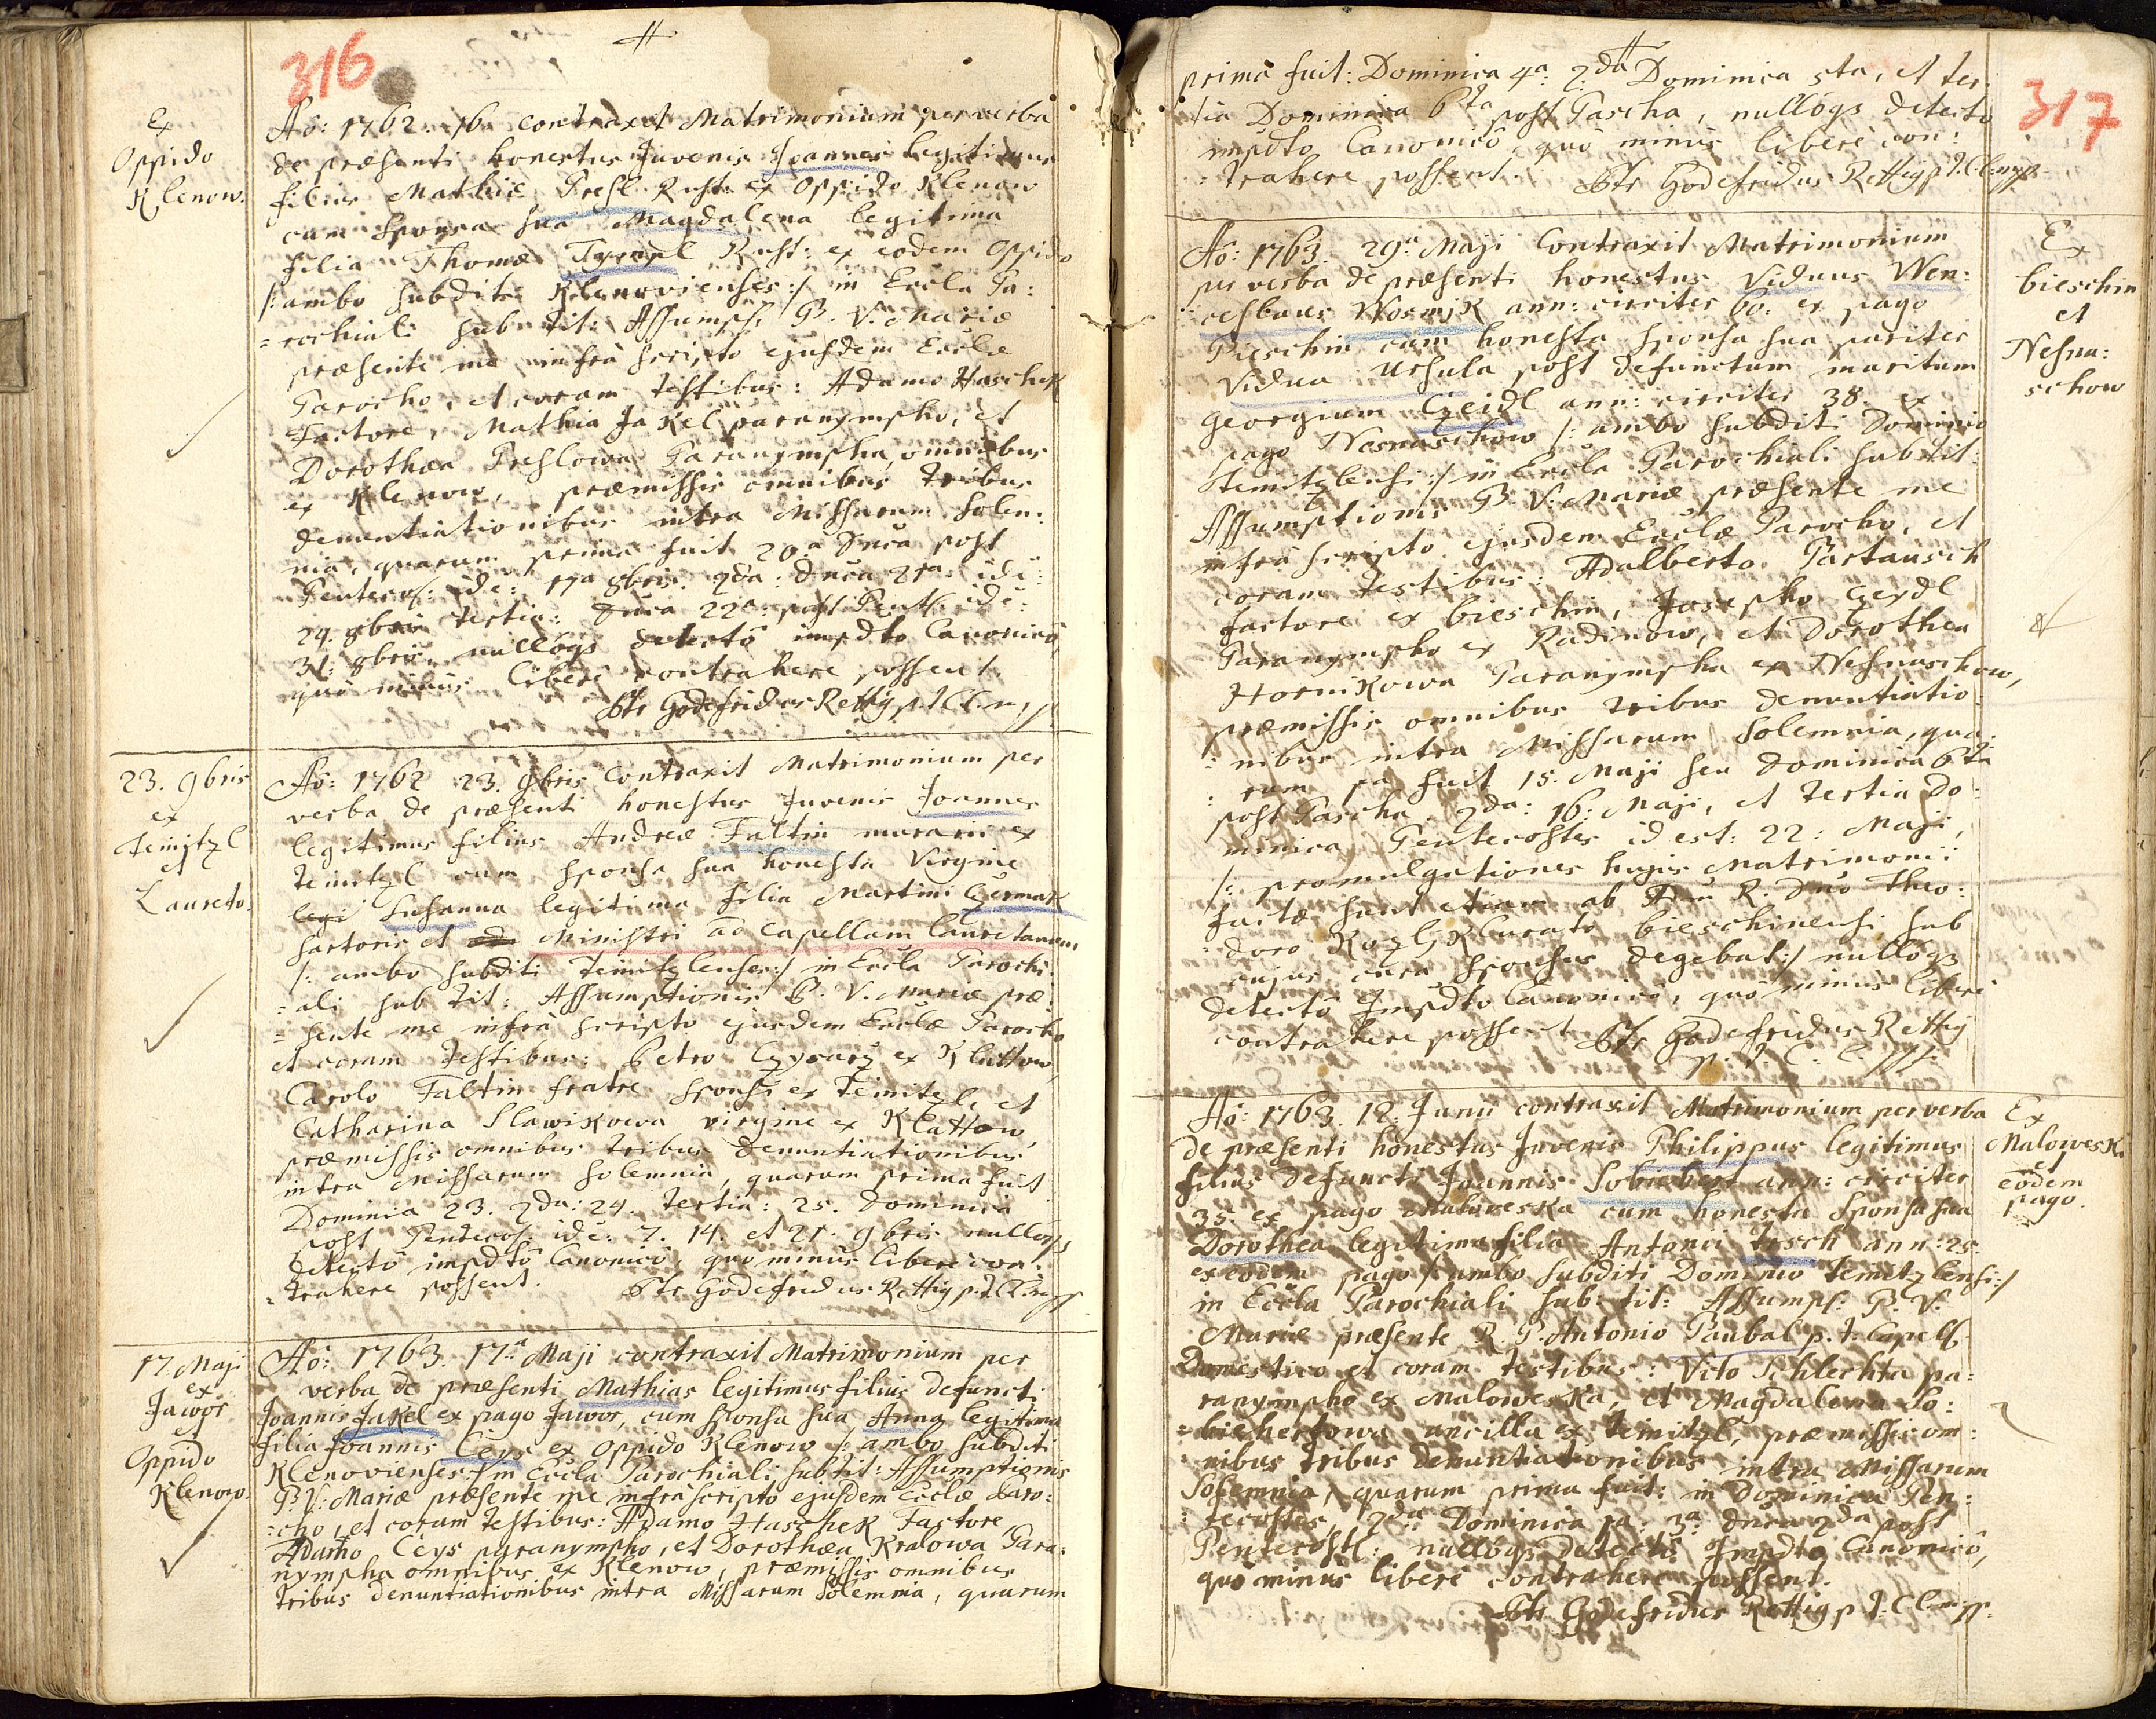 316
Ex
Oppido
Klenow.
Aō: 1762. 16. contraxit Matrimonium per verba
de præsenti honestus Juvenis Joannes legitimus
filius Mathiæ Presl Rust: ex Oppido Klenow
cum Sponsa sua Magdalena legitima
filia Thomæ Rust: ex eodem Oppido
/: ambo subditi Klenovienses :/ in Eccla Pa:
=rochiali sub tit: Assumpt: B. V. Mariæ
præsente me infrà scripto ejusdem Ecclæ
Parocho, et coram testibus: Adamo Haschek
Factore, Mathia Jakel paranympho, et
Dorothæa Preslowa Paranympha, omnibus
ex Klenow, præmissis omnibus tribus
denuntiationibus intra Missarum solem:
nia, quarum prima fuit 20.a Dnca post
Pentecos: ide: 17a 8bris. 2da: Dnca 21a. idē:
24. 8bris tertia: Dnca 22a: post Pent: idē:
31: 8bris. nullóq detectô impdto Canonicô,
quô minùs liberè contrahere possent.
Ptr Godefridus Rettig p. t. C. mpp
23. 9bris
ex
Teinitzl
et
Laureto.
Aō: 1762 23. 9bris Contraxit Matrimonium per
verba de præsenti honestus Juvenis Joannes
legitimus filius Andreæ Faltin murarii ex
Teinitzl cum Sponsa sua honesta Virgine
legi Susanna legitima filia Martini Czermak
sartoris et ad Ministri ad Capellam Lauretanam
/: ambo subditi Teinitzlenses :/ in Eccla Parochi:
=ali sub tit: Assumptionis B. V. Mariæ præ:
=sente me infrà scripto ejusdem Ecclæ Parocho
et coram testibus: Petro ex Klattow,
Carolo Faltin fratre sponsi ex Teinitzl, et
Catharina Slawikowa virgine ex Klattow,
præmissis omnibus tribus denuntiationibus
intra Missarum solemnia, quarum prima fuit
Dominica 23. 2da: 24. tertia: 25. Dominica
post Pentecos: idē: 7. 14. et 21. 9bris nullóqs
detectô impdtô Canonicô, quo minùs liberè con:
=trahere possent. Ptr Godefridus Rettig p. t. C. mpp
17. Maji
ex
Jawor
et
Oppido
Klenow.
Aō: 1763. 17.a Maji contraxit Matrimonium per
verba de præsenti Mathias legitimus filius defuncti
Joannis Jakel ex pago Jawor, cum sponsa sua Anna legitima
filia Joannis Ceys ex Oppido Klenow /: ambo subditi
Klenovienses :/ in Eccla Parochiali sub tit: Assumptionis
B. V: Mariæ præsente me infrà scripto ejusdem Ecclæ Paro:
=cho, et coram testibus: Adamo Haschek Factore,
Adamo Ceys paranympho, et Dorothæa Kralowa Para:
nympha omnibus ex Klenow, præmissis omnibus
tribus denuntiationibus intra Missarum Solemnia, quarum
317
prima fuit: Dominica 4a. 2.da Dominica 5ta, et ter
tia Dominica 6ta post Pascha, nullóqs detecto
impdto Canonicô, quô minùs liberè con:
=trahere possent. Ptr Godefridus Rettig p. t. C. mpp
Ex
bieschin
et
Nesna:
schow
Aō: 1763. 29.a Maji Contraxit Matrimonium
per verba de præsenti honestus Viduus Wen:
ceslaus Wosmik ann: circiter 60. ex pago
Bieschin cum honesta Sponsa sua pariter
Vidua Ursula post defunctum maritum
Georgium Czeidl ann: circiter 38. ex
pago Nesnaschow /: ambo subditi Dominio
Teinitzlensi :/ in Eccla Parochiali sub tit:
Assumptionis B. V. Mariæ præsente me
infrà scripto ejusdem Ecclæ Parocho, et
coram testibus: Adalberto Partausch
factore ex bieschin, Josepho Czeydl
Paranympho ex Radinow, et Dorothea
Hornikowa Paranympha ex Nesnaschow,
præmissis omnibus tribus denuntiatio
nibus intra Missarum solemnia, qua:
rum 1a fuit 15. Maji seu Dominica 6ta
post Pascha. 2da: 16: Maji, et tertia Do:
minica Pentecostes id est: 22: Maji,
/: promulgationes hujus Matrimonii
factæ sunt etiam ab Adm R. Dno Theo:
doro Curato bieschinensi sub
cujus cura sponsus degebat :/ nullóqs
detectô Impdto Canonicô, quô minùs liberè
contrahere possent. Ptr Godefridus Rettig
p. t. C. mpp
Ex
Malowesk.
et
eodem
pago.
Aō: 1763. 12. Junii contraxit Matrimonium per verba
de præsenti honestus Juvenis Philippus legitimus
filius defuncti Joannis ann: circiter
35. ex pago Maloweska cum honesta Sponsa sua
Dorothea legitima filia Antonii Jesch ann: 25.
ex eodem pago /: ambo subditi Dominio Teinitzlensi :/
in Eccla Parochiali sub: tit: Assumpt: B. V.
Mariæ præsente R. P. Antonio Paubal p. t. Capell.
Domestico et coram testibus: Vito Schlechta pa=
ranympho ex Maloweska, et Magdalena So:
ancilla ex Teinitzl, præmissis om:
nibus tribus denuntiationibus intra Missarum
Solemnia, quarum prima fuit: in Dominica Pen:
tecostes, 2da Dominica 1a: 3a: Dnca 2da post
Pentecost: nullóqs detectô Impdto Canonicô,
quo minùs liberè contrahere possent.
Ptr Godefridus Rettig p. t. C. mpp